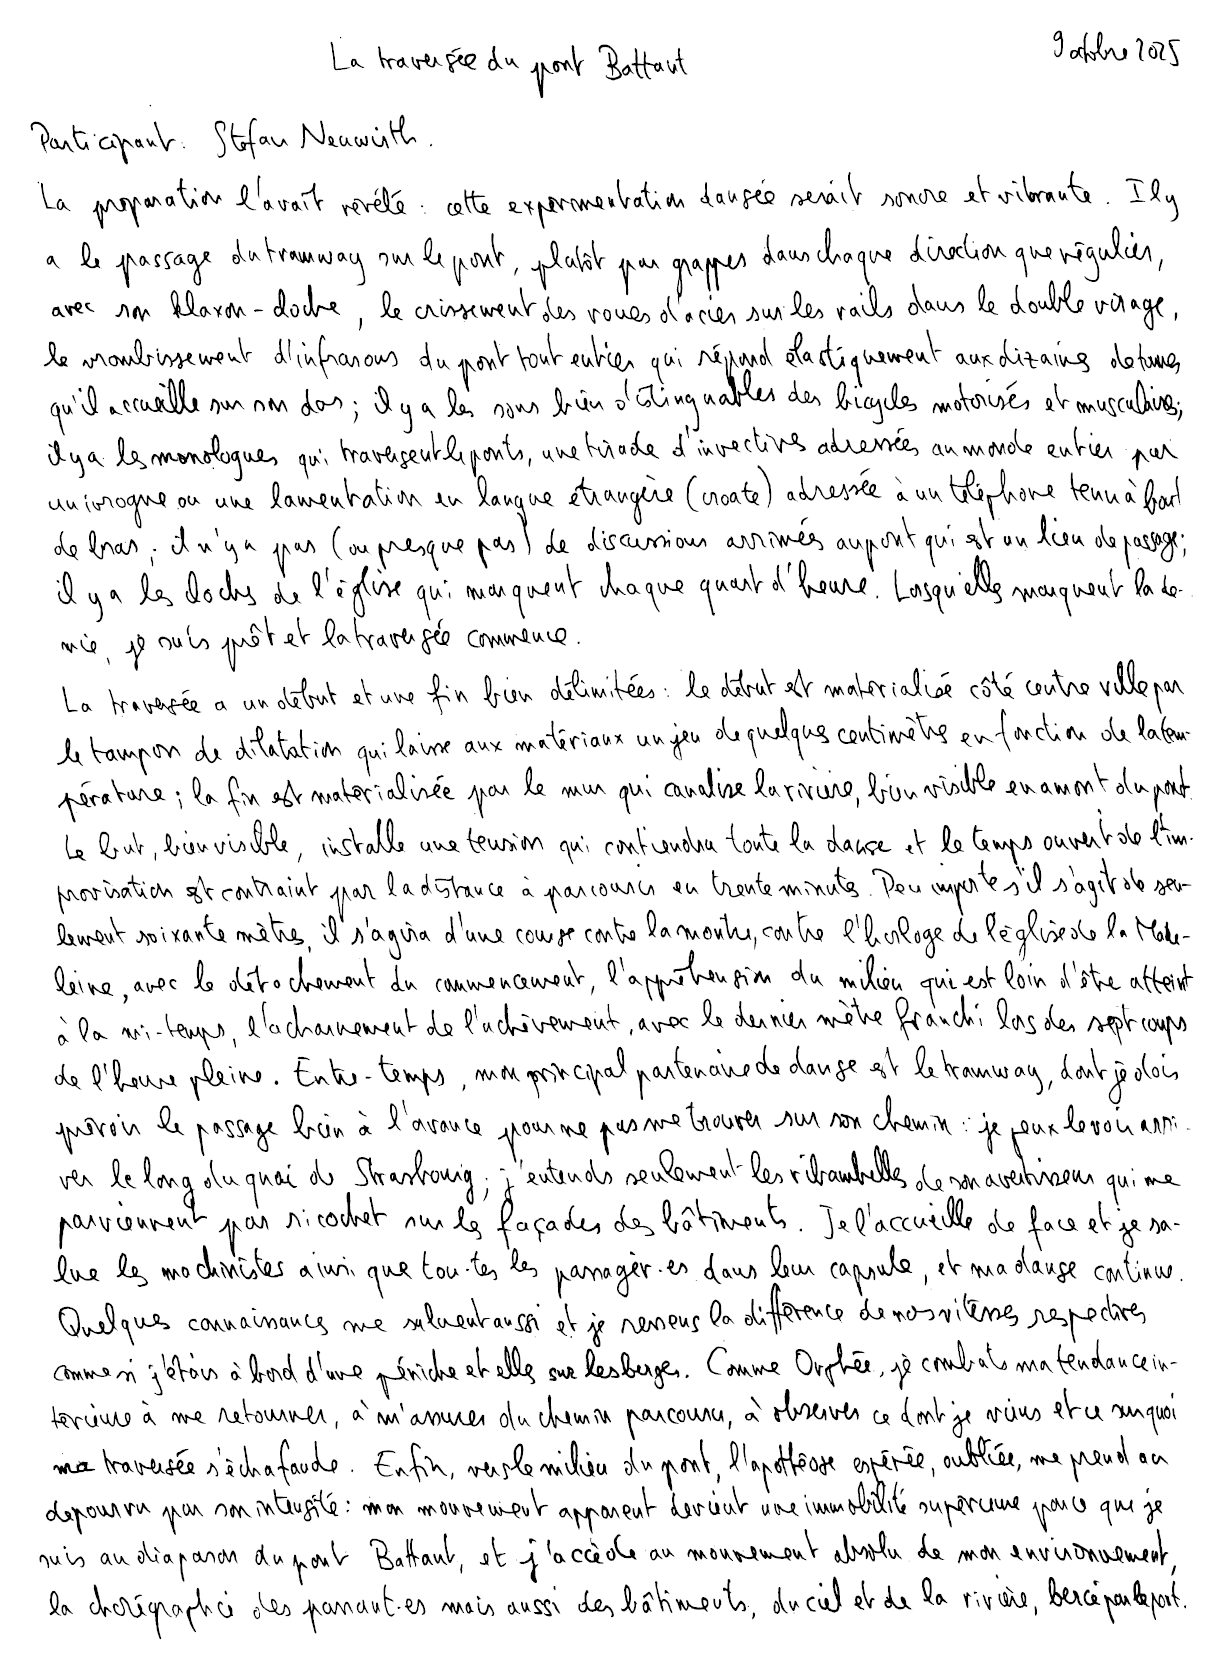 La traversée du pont Battant
9 octobre 2025
Participant : Stefan Neuwirth.
La préparation l'avait révélé : cette expérimentation dansée serait sonore et vibrante. Il y
a le passage du tramway sur le pont, plutôt par grappes dans chaque direction que régulier,
avec son klaxon-cloche, le crissement des roues d'acier sur les rails dans le double virage,
le vrombissement d'infrasons du pont tout entier qui répond élastiquement aux dizaines de tonnes
qu'il accueille sur son dos ; il y a les sons bien distinguables des bicycles motorisés et musculaires ;
il y a les monologues qui traversent le ponts, une tirade d'invectives adressées au monde entier par
un ivrogne ou une lamentation en langue étrangère (croate) adressée à un téléphone tenu à bout
de bras ; il n'y a pas (ou presque pas) de discussions arrimées au pont qui est un lieu de passage ;
il y a les cloches de l'église qui marquent chaque quart d'heure. Lorsqu'elles marquent la de-
mie, je suis prêt et la traversée commence.
La traversée a un début et une fin bien délimitées : le début est matérialisé côté centre ville par
le tampon de dilatation qui laisse aux matériaux un jeu de quelques centimètres en fonction de la tem-
pérature ; la fin est matérialisée par le mur qui canalise la rivière, bien visible en amont du pont.
Le but, bien visible, installe une tension qui contiendra toute la danse et le temps ouvert de l'im-
provisation est contraint par la distance à parcourir en trente minutes. Peu importe s'il s'agit de seu-
lement soixante mètres, il s'agira d'une course contre la montre, contre l'horloge de l'église de la Made-
leine, avec le détachement du commencement, l'appréhension du milieu qui est loin d'être atteint
à la mi-temps, l'acharnement de l'achèvement, avec le dernier mètre franchi lors des sept coups
de l'heure pleine. Entre-temps, mon principal partenaire de danse est le tramway, dont je dois
prévoir le passage bien à l'avance pour ne pas me trouver sur son chemin : je peux le voir arri-
ver le long du quai de Strasbourg ; j'entends seulement les ribambelles de son avertisseur qui me
parviennent par ricochet sur les façades des bâtiments. Je l'accueille de face et je sa-
lue les machinistes ainsi que tou·tes les passagèr·es dans leur capsule, et ma danse continue.
Quelques connaissances me saluent aussi et je ressens la différence de nos vitesses respectives
comme si j'étais à bord d'une péniche et elles sur les berges. Comme Orphée, je combats ma tendance in-
térieure à me retourner, à m'assurer du chemin parcouru, à observer ce dont je viens et ce sur quoi
ma traversée s'échafaude. Enfin, vers le milieu du pont, l'apothéose espérée, oubliée, me prend au
dépourvu par son intensité : mon mouvement apparent devient une immobilité supérieure parce que je
suis au diapason du pont Battant, et j'accède au mouvement absolu de mon environnement,
la chorégraphie des passant·es mais aussi des bâtiments, du ciel et de la rivière, bercé par le pont.